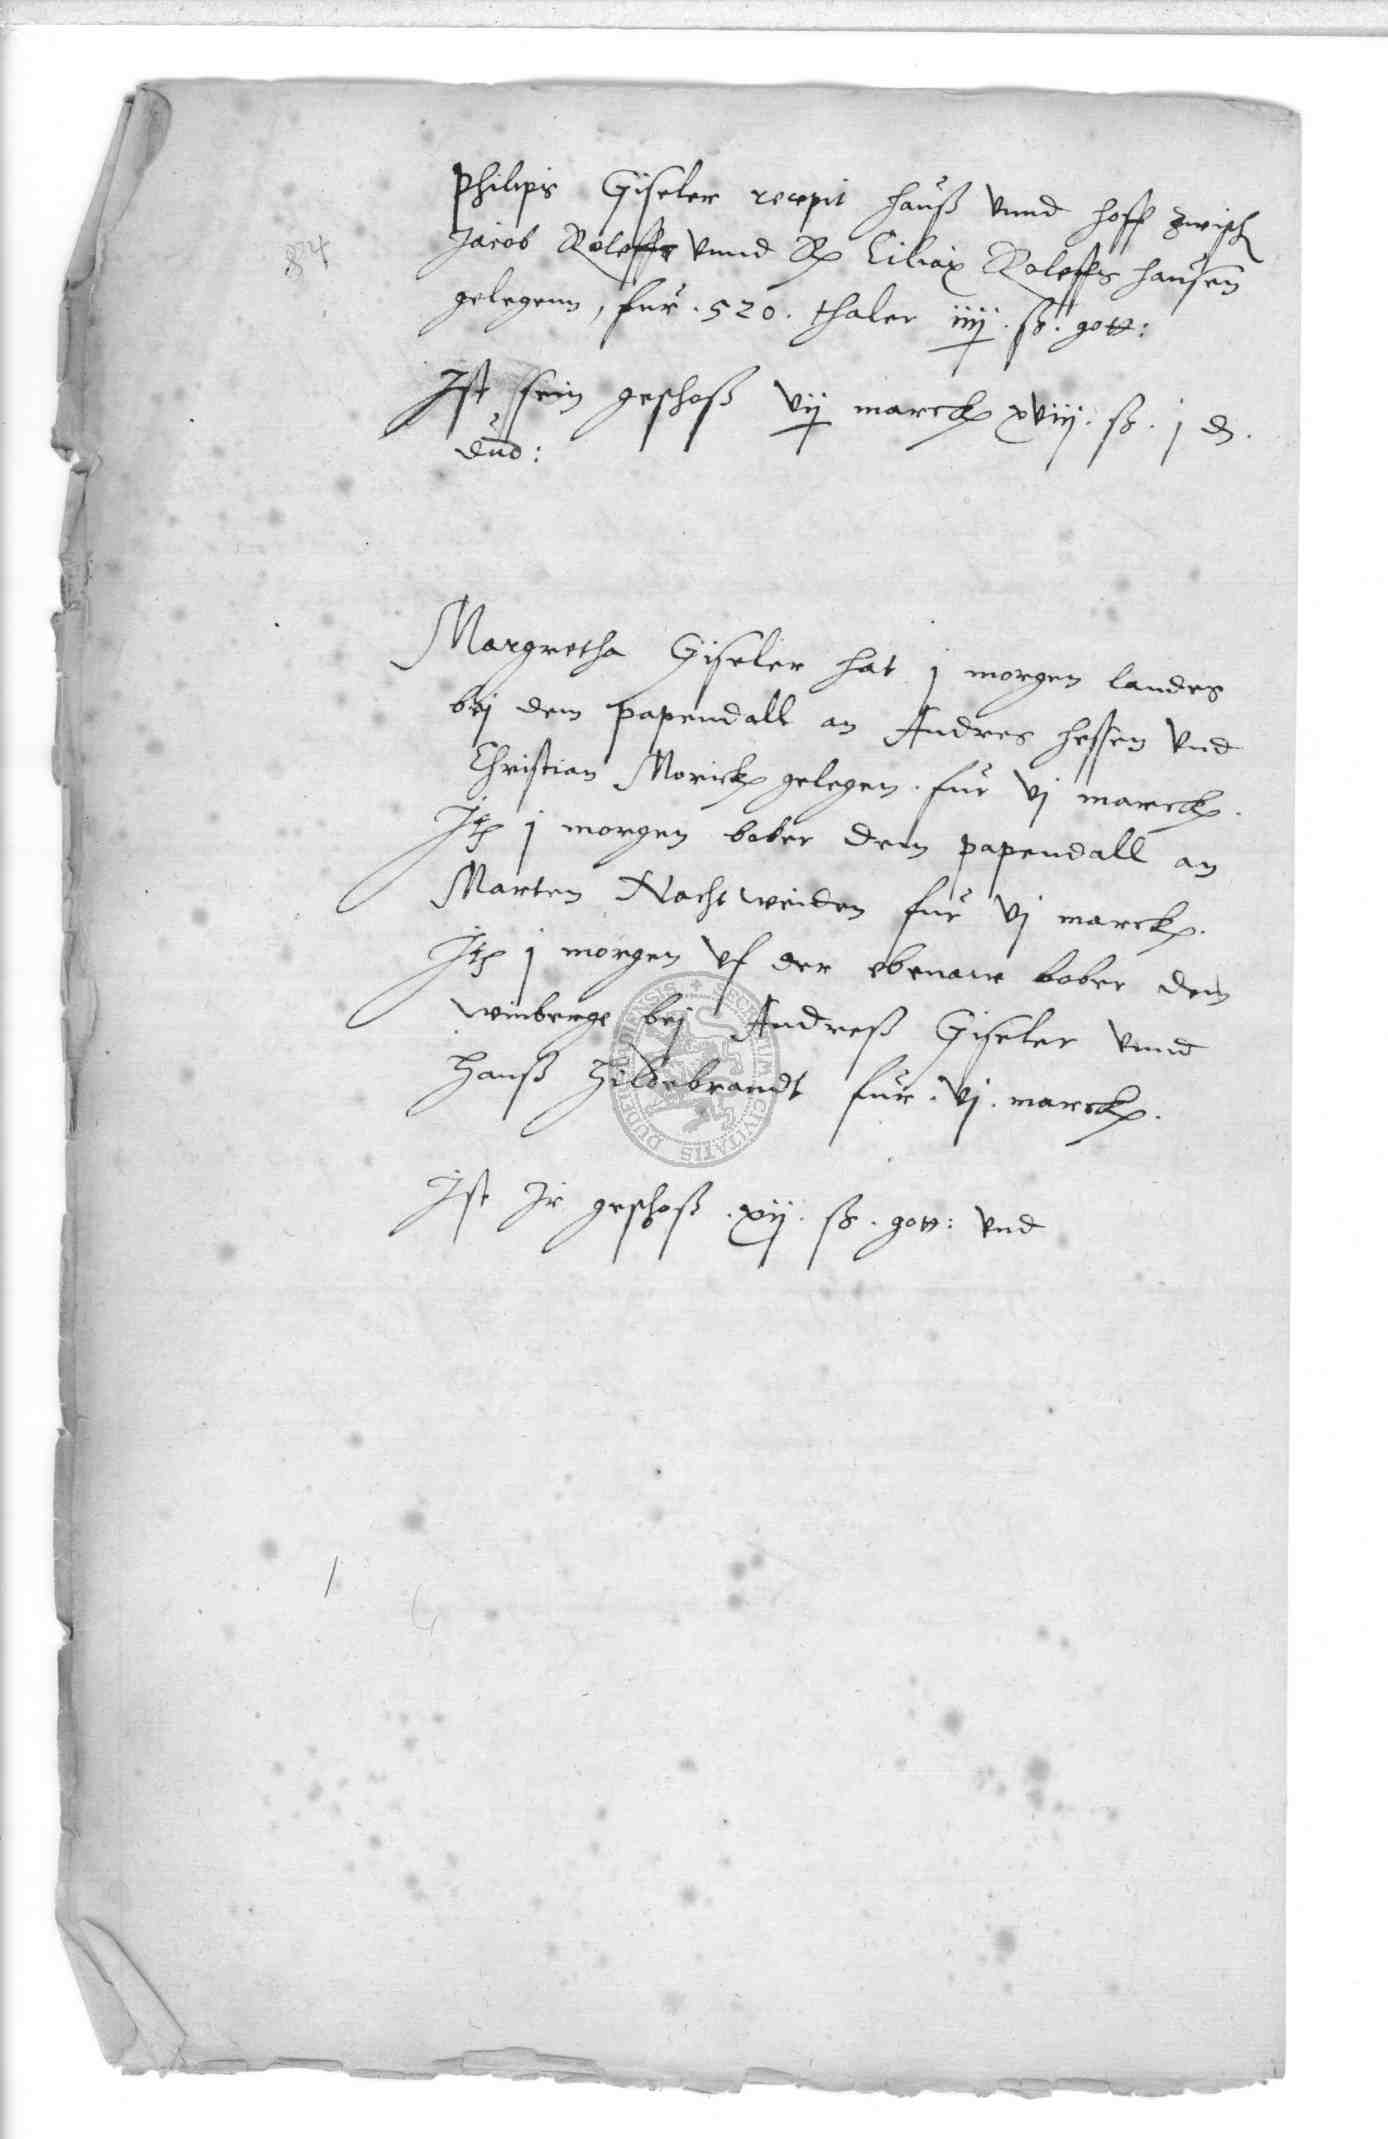 Philips Giseler recepit hauß vnnd hoff zwisch
Jacob Roleffs vnnd Ciliax Roleffs hausen
gelegenn, fur . 520 . thaler iiij . ß . gott:
Ist sein geschoß vij marck xviij . ß . j d .
dud:
84
Margretha Giseler hat j morgen landes
bej dem papendall an Andres hessen vnd
Christian Morick gelegen . fur vj marck .
Jt j morgen bober dem papendall an
Marten Nachtweiden fur vj marck .
Jt j morgen vf der ebenaw bober dem
winberge bej Andreß Giseler vnnd
Hanß Hildebrandt fur . vj . marck .
Ist Jr geschoß . xij . ß . gott: vnd
SECRETUM CIVITATIS DUDERSTADIENSIS